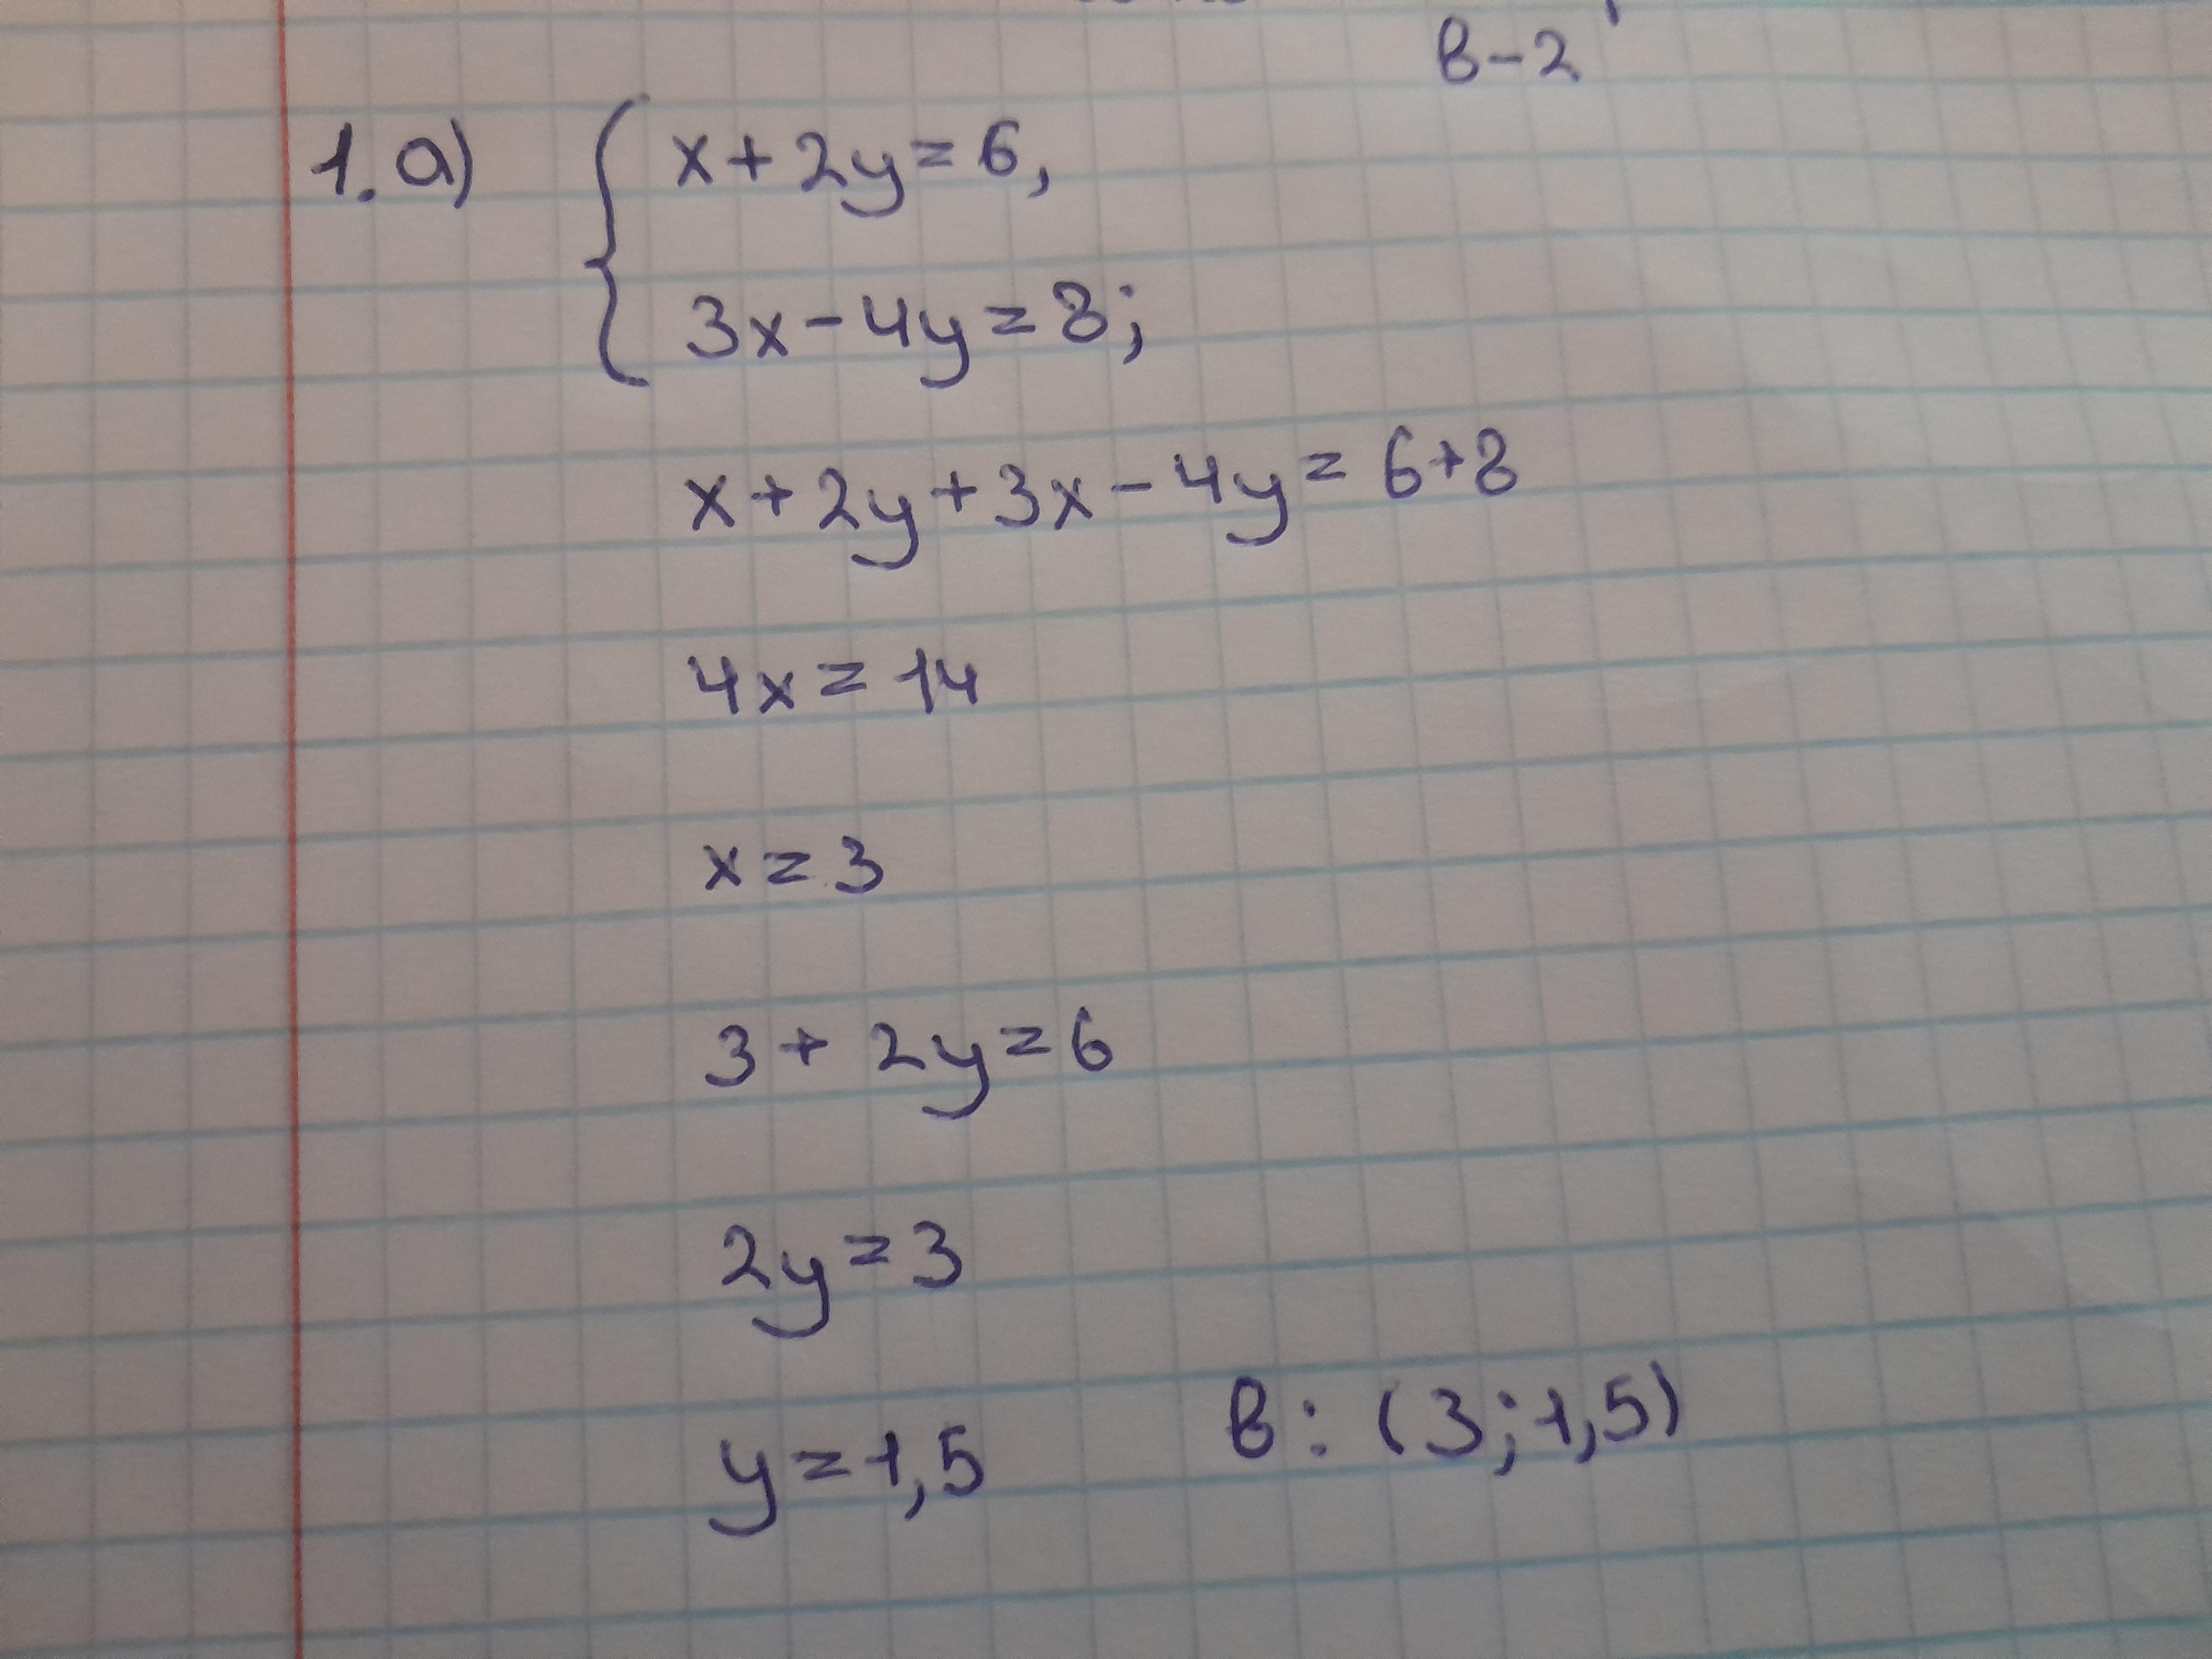 В-2
1. а) { x+2y=6,
3x-4y=8;
x+2y+3x-4y=6+8
4x=14
x=3
3+2y=6
2y=3
y=1,5
В: (3;1,5)